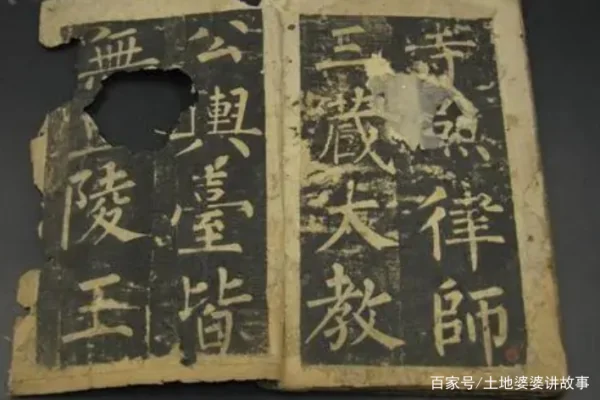 寺照律師
三藏大教
公輿臺皆
無陵王
百家号/土地婆婆讲故事